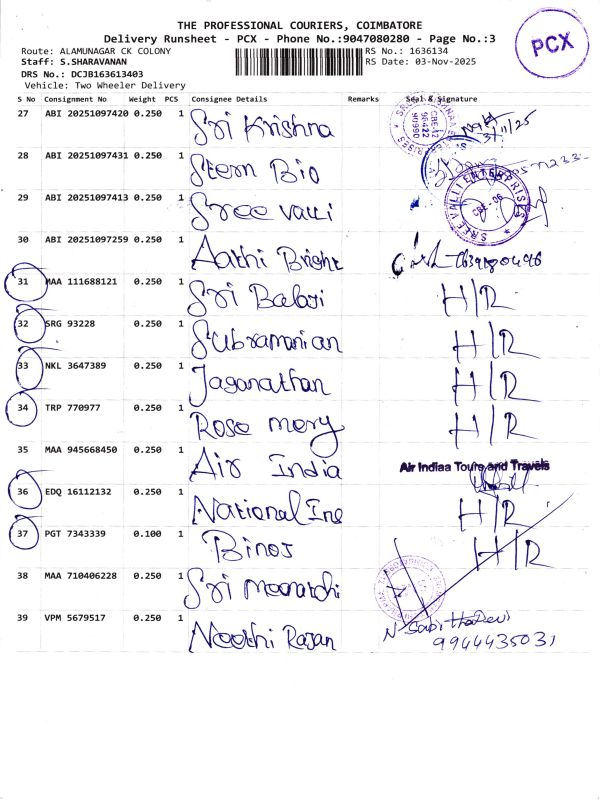 THE PROFESSIONAL COURIERS, COIMBATORE
Delivery Runsheet - PCX - Phone No.:9047080280 - Page No.:3
PCX
Route: ALAMUNAGAR CK COLONY
RS No.: 1636134
Staff: S.SHARAVANAN
RS Date: 03-Nov-2025
DRS No.: DCJB163613403
Vehicle: Two Wheeler Delivery
S No Consignment No Weight PCS Consignee Details Remarks Seal & Signature
27 ABI 20251097420 0.250 1 Sri Krishna
3/11/25
28 ABI 20251097431 0.250 1 Stern Bio
29 ABI 20251097413 0.250 1 Sree valli
SREE VALLI ENTERPRISES
CBE-06
30 ABI 20251097259 0.250 1 Aathi Bright
31 MAA 111688121 0.250 1 Sri Balaji H/R
32 SRG 93228 0.250 1 Subramanian H/R
33 NKL 3647389 0.250 1 Jaganathan H/R
34 TRP 770977 0.250 1 Rose mery H/R
35 MAA 945668450 0.250 1 Air India
Air Indiaa Tours and Travels
36 EDQ 16112132 0.250 1 National Ine H/R
37 PGT 7343339 0.100 1 Binoj H/R
38 MAA 710406228 0.250 1 Sri meenatchi
39 VPM 5679517 0.250 1 Neethi Rajan
N Sabitha Devi
9944435031